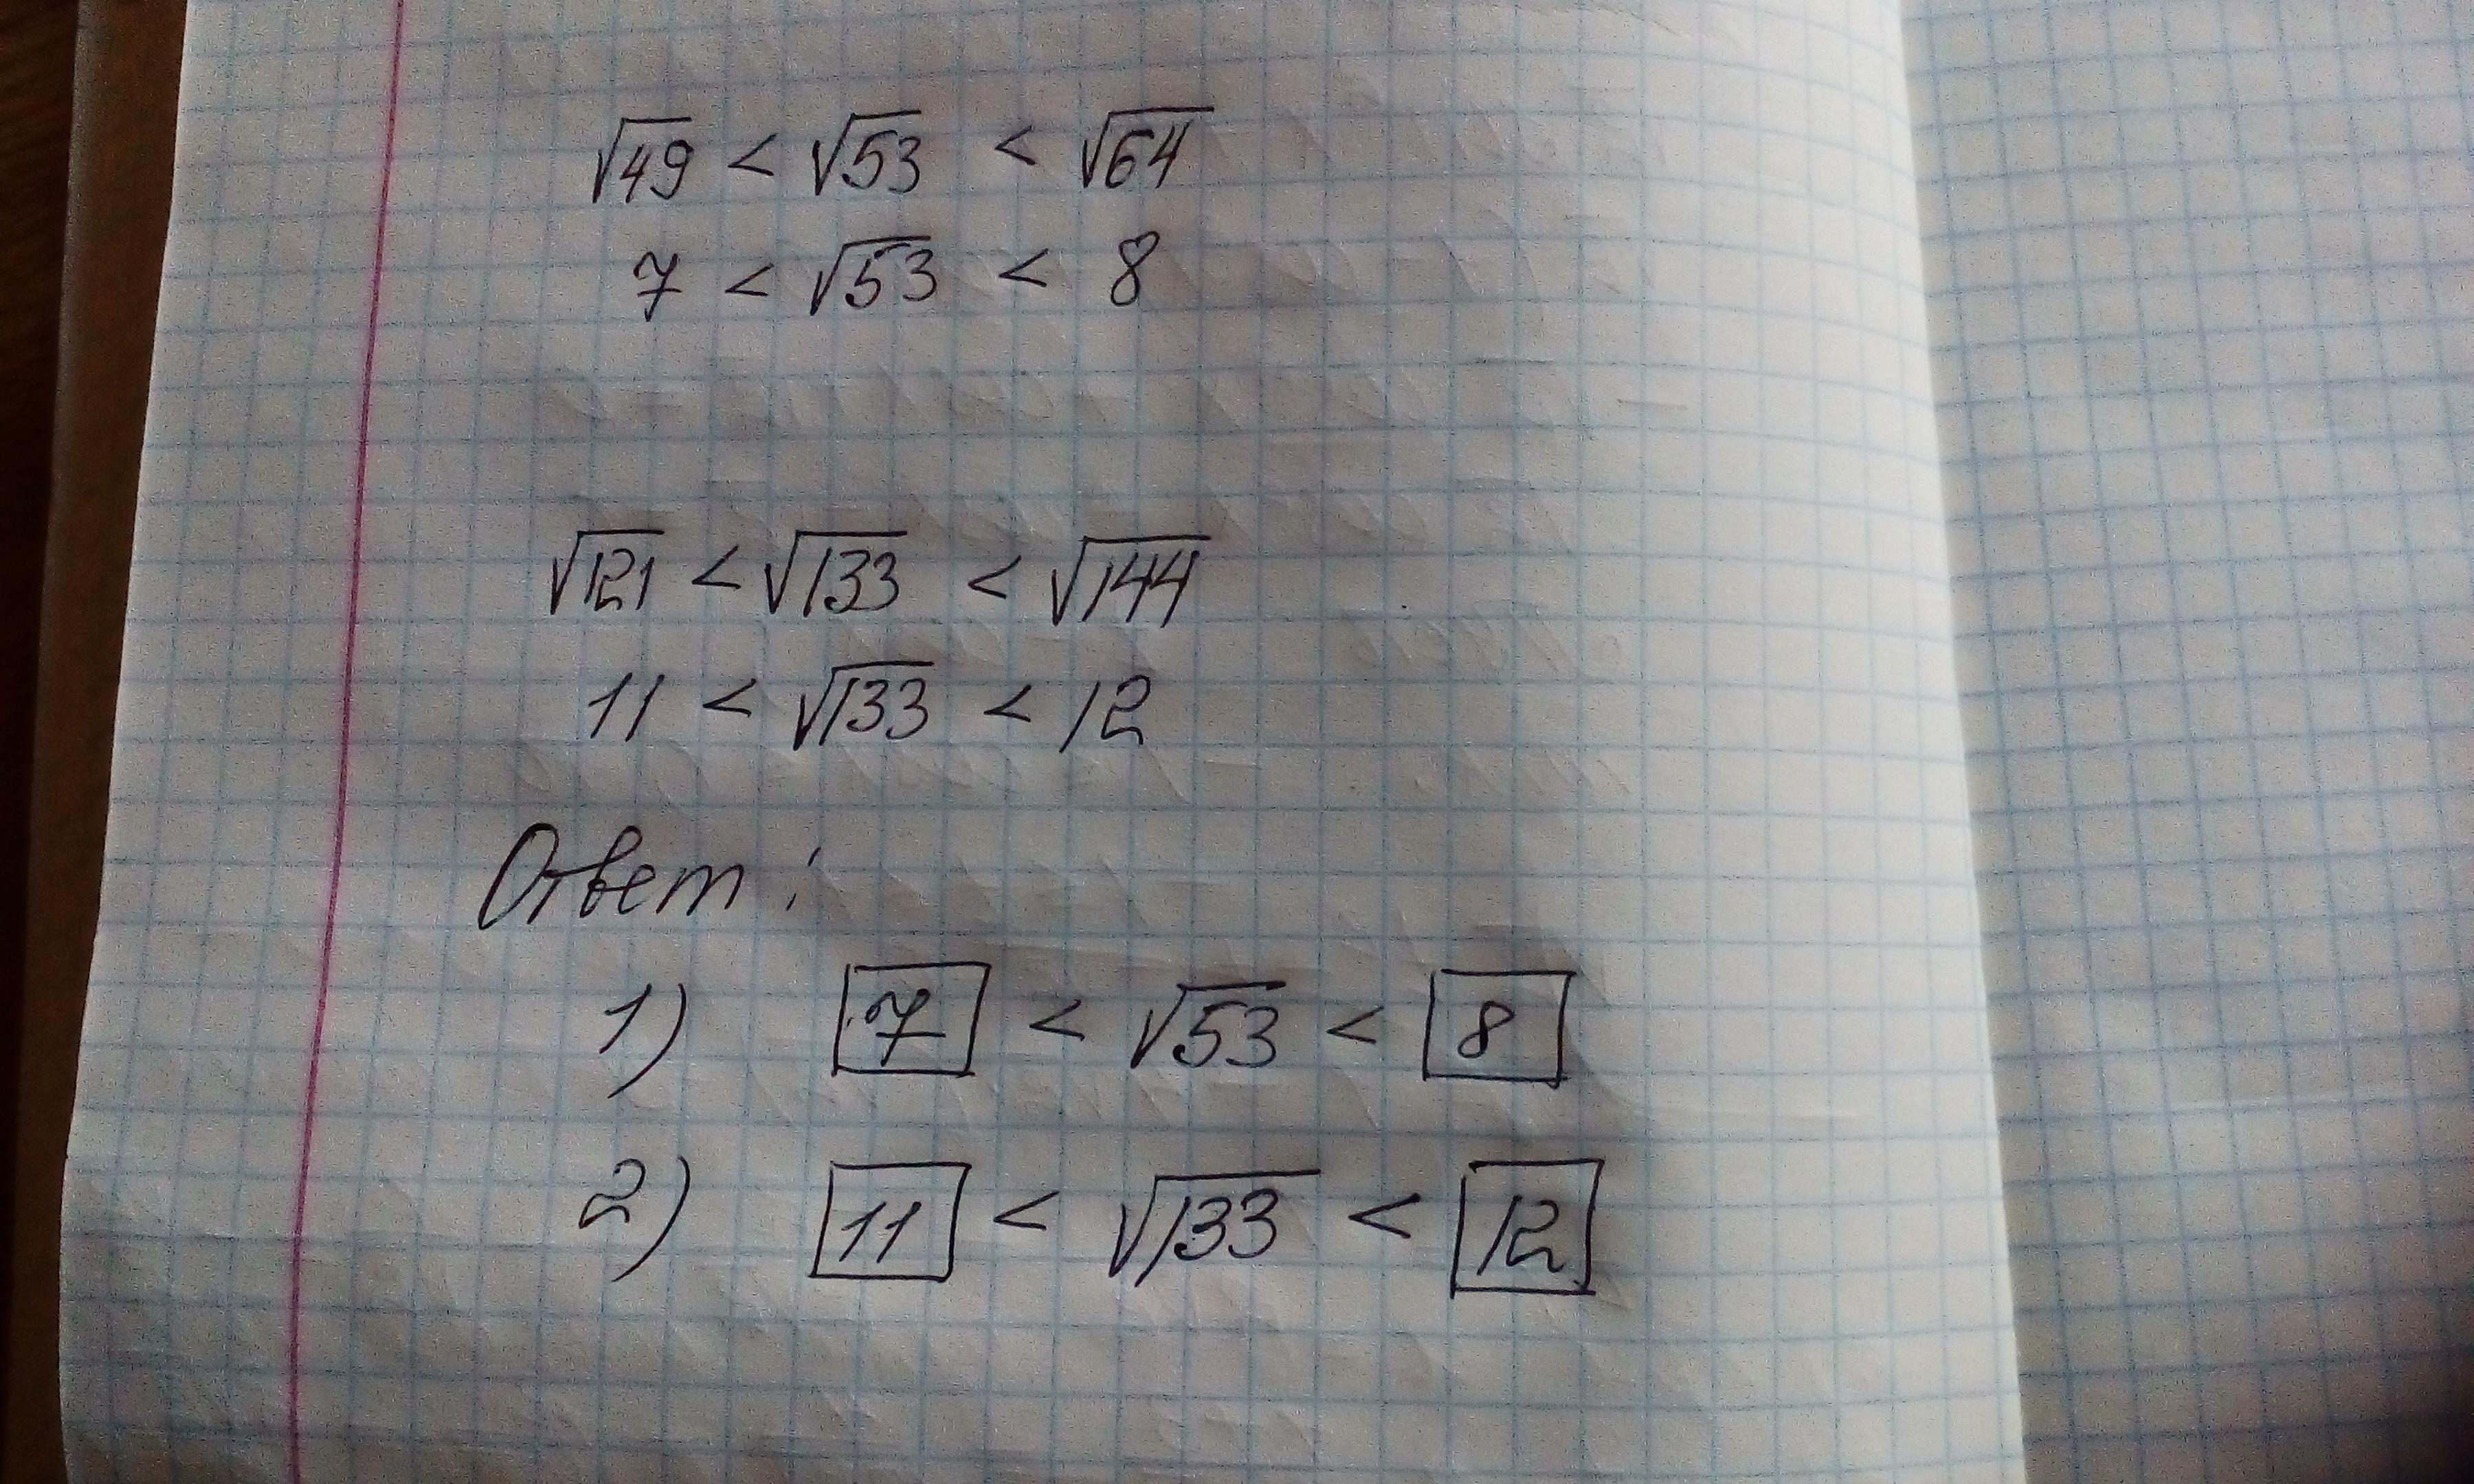 √49 < √53 < √64
7 < √53 < 8
√121 < √133 < √144
11 < √133 < 12
Ответ:
1) 7 < √53 < 8
2) 11 < √133 < 12